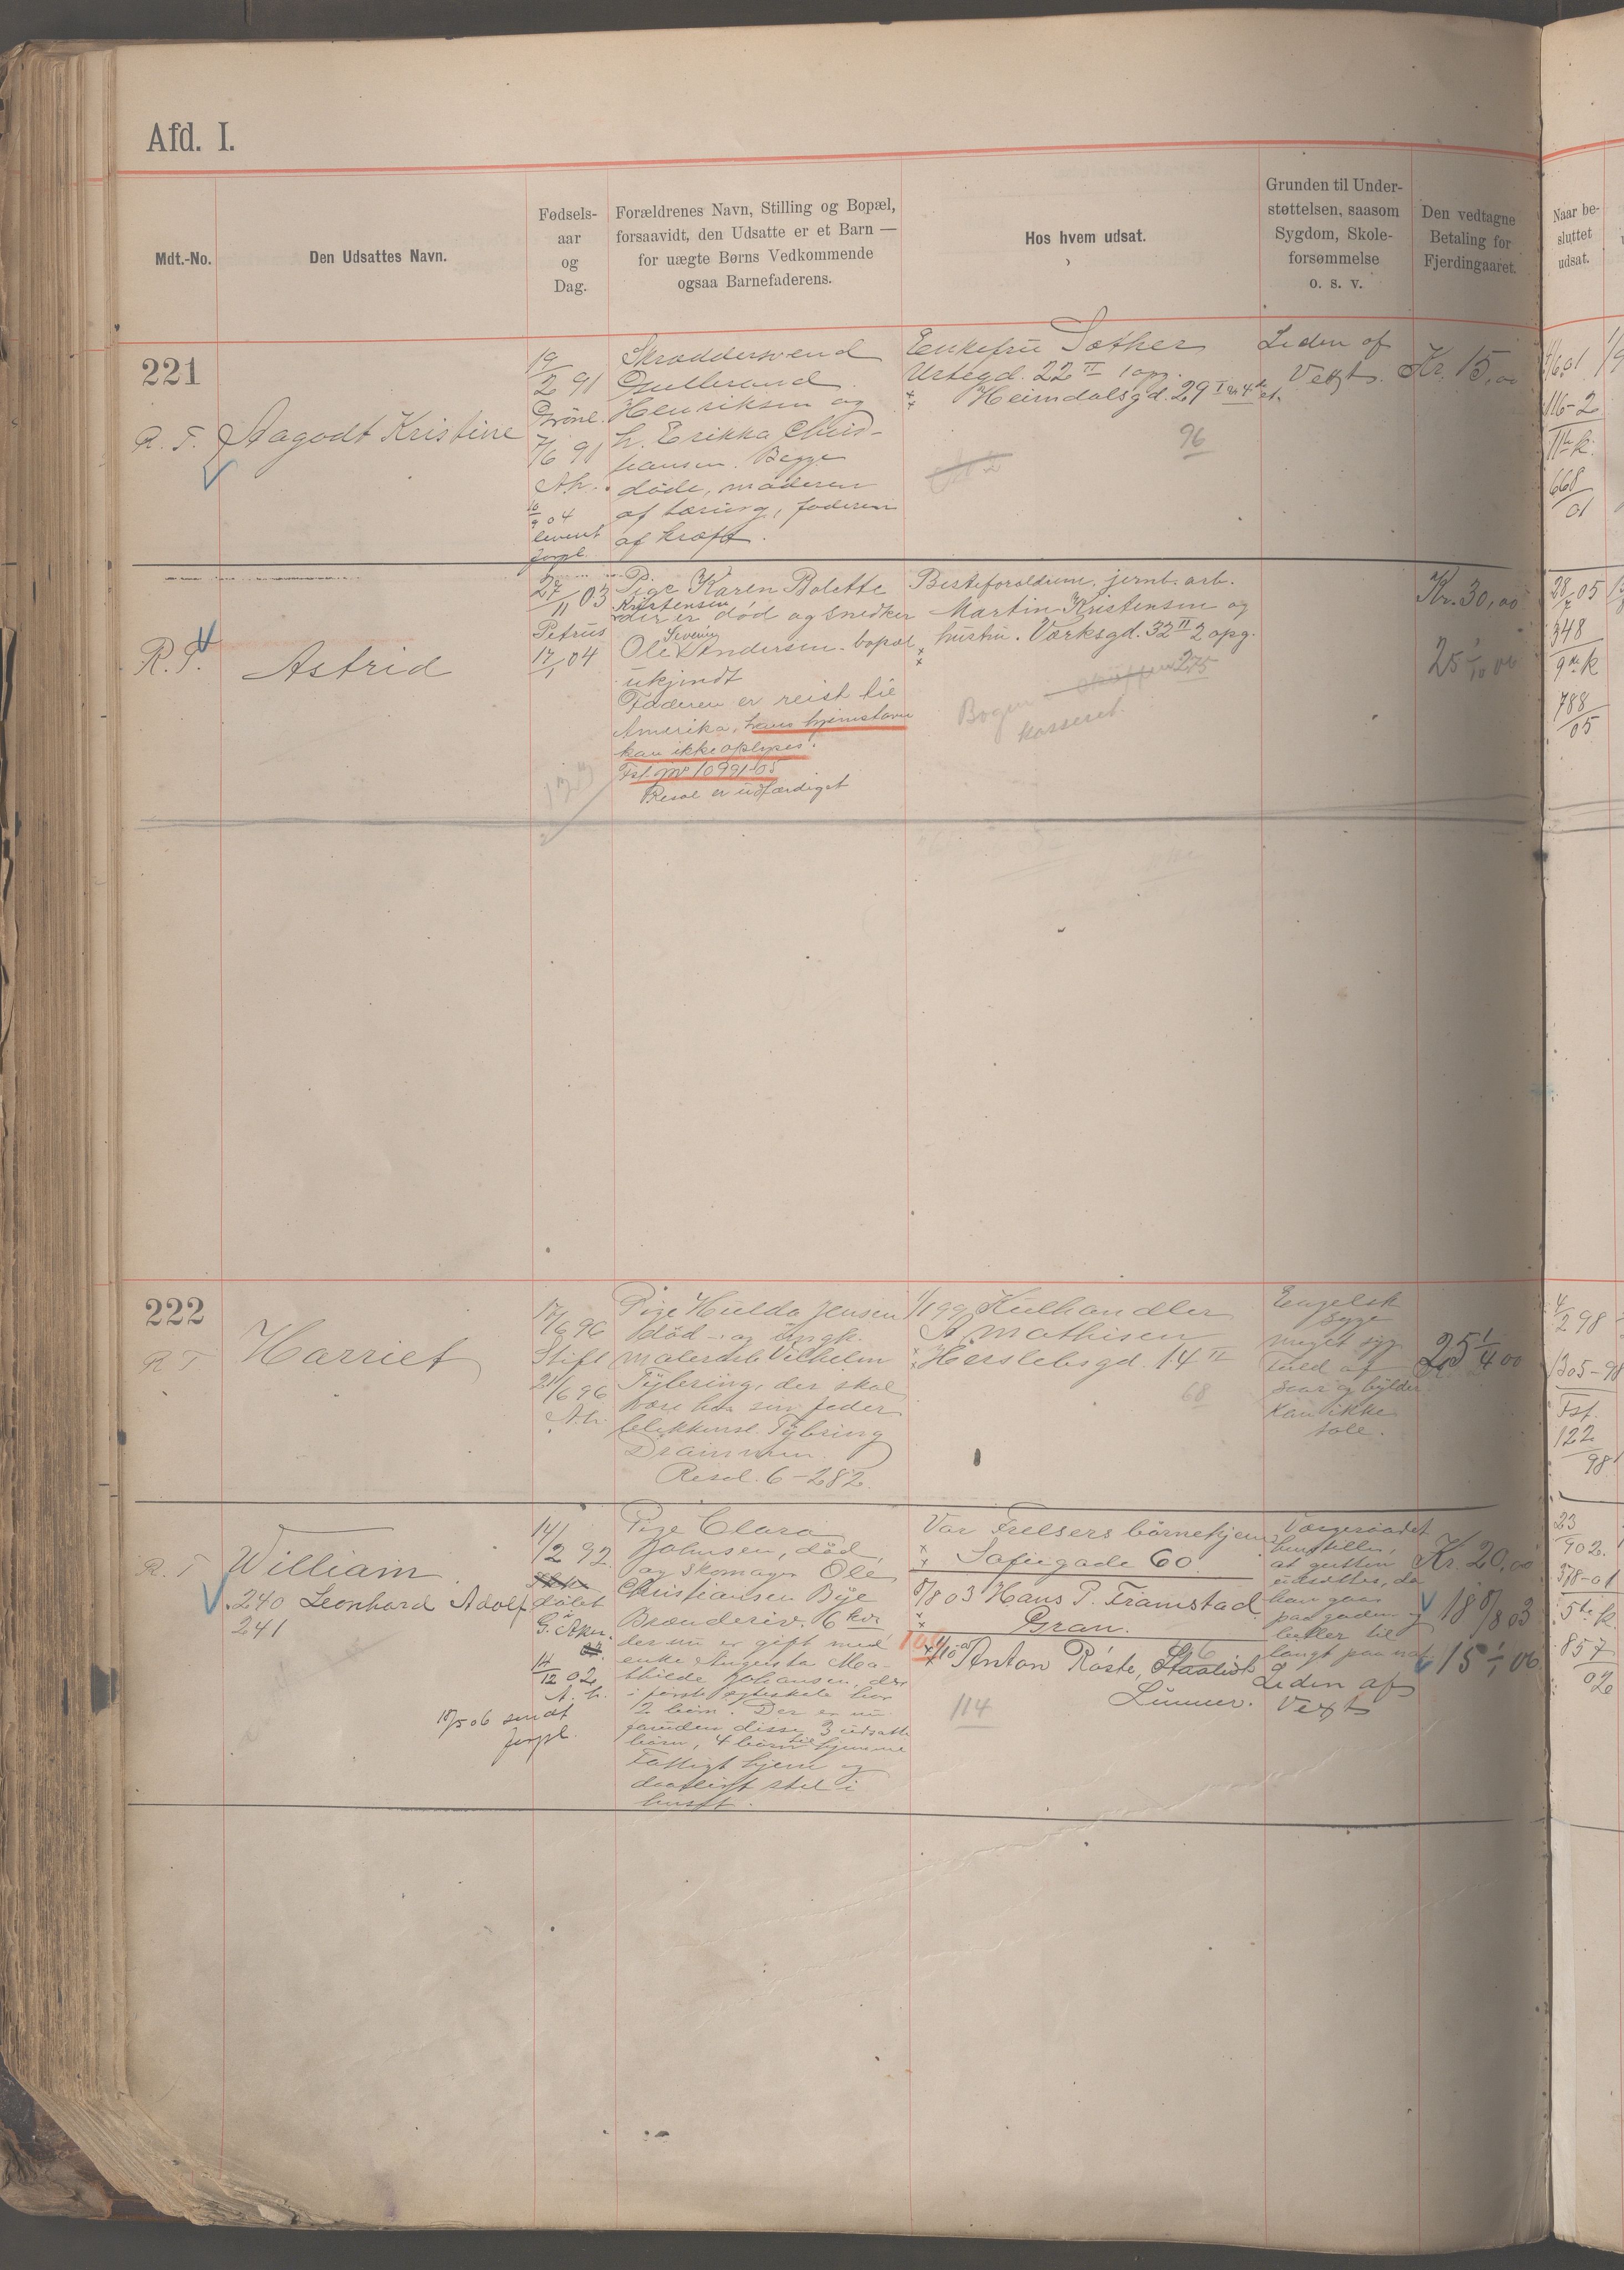 Afd. I.
Mdt.-No.
Den Udsattes Navn.
Fødsels-
aar
og
Dag.
Forældrenes Navn, Stilling og Bopæl,
forsaavidt, den Udsatte er et Barn —
for uægte Børns Vedkommende
ogsaa Barnefaderens.
Hos hvem udsat.
Grunden til Under-
støttelsen, saasom
Sygdom, Skole-
forsømmelse
o. s. v.
Den vedtagne
Betaling for
Fjerdingaaret.
Naar be-
sluttet
udsat.
221
R. T. Aagodt Kristine
19/2 91
Grönl.
7/6 91
A.h.
16/9 04
leveret
forpl.
Skræddersvend
Gulbrand
Henriksen og
h. Erikka
hansen. Begge
döde, moderen
af tæring, faderen
af kræft.
Enkefru Sæther
Urtegd. 22 II 1 opg.
Heimdalsgd. 29
96
Liden af
Vext.
Kr. 15,00
R. T. Astrid
27/11 03
Petrus
17/1 04
Pige Karen Bolette
Kristensen
der er död og Snedker
Severin
Ole Andersen. bopæl
ukjendt
Faderen er reist til
Amerika, hans hjemstavn
kan ikke oplyses.
Fst. No 10991-05
Resol er udfærdiget
Besteforældrene, jernb. arb.
Martin Kristensen og
hustru. Verksgd. 32 II 2 opg.
275
Bogen
kasseret.
Kr. 30,00
25 1/10 00
28/7 05
348
9de k
788/05
222
R T Harriet
17/6 96
Stift
21/6 96
A.h.
Pige Hulda Jensen
död - og
malersv. Vilhelm
Tybring, der skal
være hos sin fader
blikkensl. Tybring
Drammen.
Resol. 6-282.
1/1 99 Kulhandler
A. Mathisen
Herslebsgd. 14 II
68
Engelsk
syge
meget syg
fuld af
saar og bylder
Kan ikke
tale.
25 1/4 00
4/2 98
1305-98
Fst.
122/98
R. T William
240 Leonhard Adolf
241
14/2 92
dölet
G. Aker.
14/12 02
A. h.
18/5 06 sendt
forpl.
Pige Clara
Johnsen, död,
og skomager Ole
Christiansen Bye
Brænderiv. 6
der nu er gift med
enke Augusta Ma-
thilde Johansen, der
i förste egteskab har
2 börn. Der er nu
foruden disse 3 udsatte
börn, 4 börn hjemme
Fattigt hjem og
daarligt stel i
huset.
Vor Frelsers börnehjem
Sofiegade 60
8/8 03 Hans P. Framstad
Gran.
Anton Röste,
Lunner.
114
Vergeraadet
henstiller,
at gutten
udsættes, da
han gaar
paa gaden og
lusker til
langt paa nat
Liden af
Vext
Kr. 20,00
18 8/8 03
15 1/1 06
23/902.
378-01
5te k.
857/02